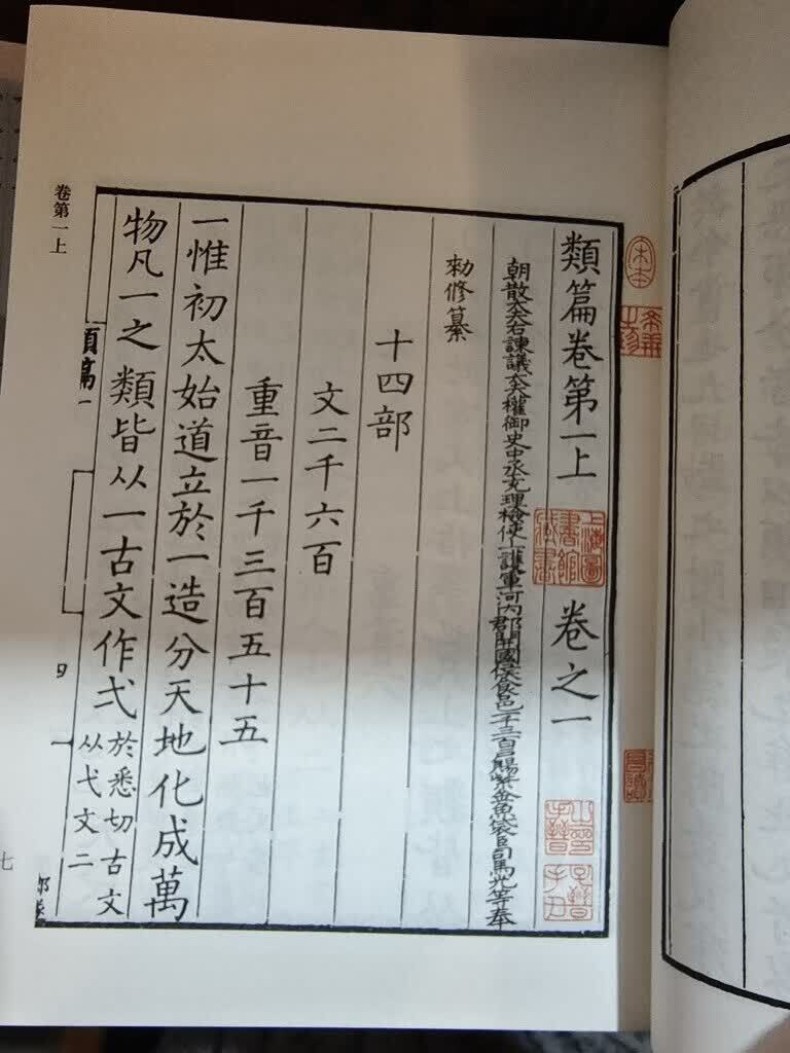 類篇卷第一上 卷之一
朝散大夫右諫議大夫權御史中丞充理檢使上護軍河內郡開國侯食邑一千三百户賜紫金魚袋臣司馬光等奉
勑修纂
十四部
文二千六百
重音一千三百五十五
一惟初太始道立於一造分天地化成萬
物凡一之類皆从一古文作弌於悉切古文
从弋文二
類篇一
卷第一上
七
上海圖
書館
藏書